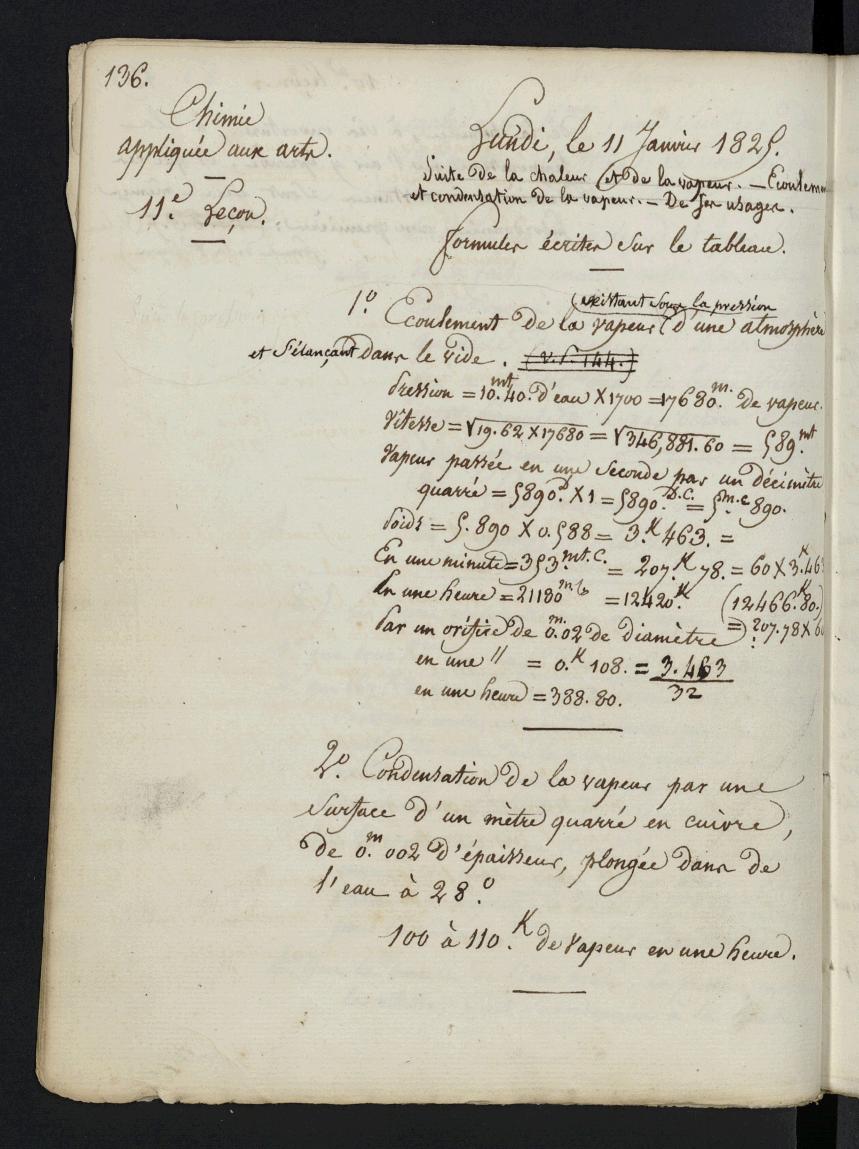 136.
Chimie
appliquée aux arts.
11.e Leçon.
Lundi, le 11 Janvier 1825.
Suite de la chaleur et de la vapeur. — Ecoulem
et condensation de la vapeur. — De ses usages.
formules écrites sur le tableau.
1.o Ecoulement de la vapeur (existant sous la pression d'une atmosphère
et s'élançant dans le vide. (v. p. 144.)
Pression = 10.mt 40. d'eau X 1700 = 17680.m. de vapeur.
Vitesse = √19.62 X 17680 = √346,881.60 = 589.mt
Vapeur passée en une seconde par un décimètre
quarré = 5890.d X 1 = 5890.D.C. = 5.m.c 890.
Poids = 5.890 X 0.588 = 3.K 463. =
En une minute = 353.mt.C. = 207.K 78. = 60 X 3.K 463
En une heure = 21180 m.Cs = 12420.K (12466.K 80.)
= 207.78 X 60
Par un orifice de 0.m.02 de diamètre :
en une " = 0.K 108. = 3.463
32
en une heure = 388.80.
2.o Condensation de la vapeur par une
surface d'un mètre quarré en cuivre,
de 0.m 002 d'épaisseur, plongée dans de
l'eau à 28.o
100 à 110.K de vapeur en une heure.